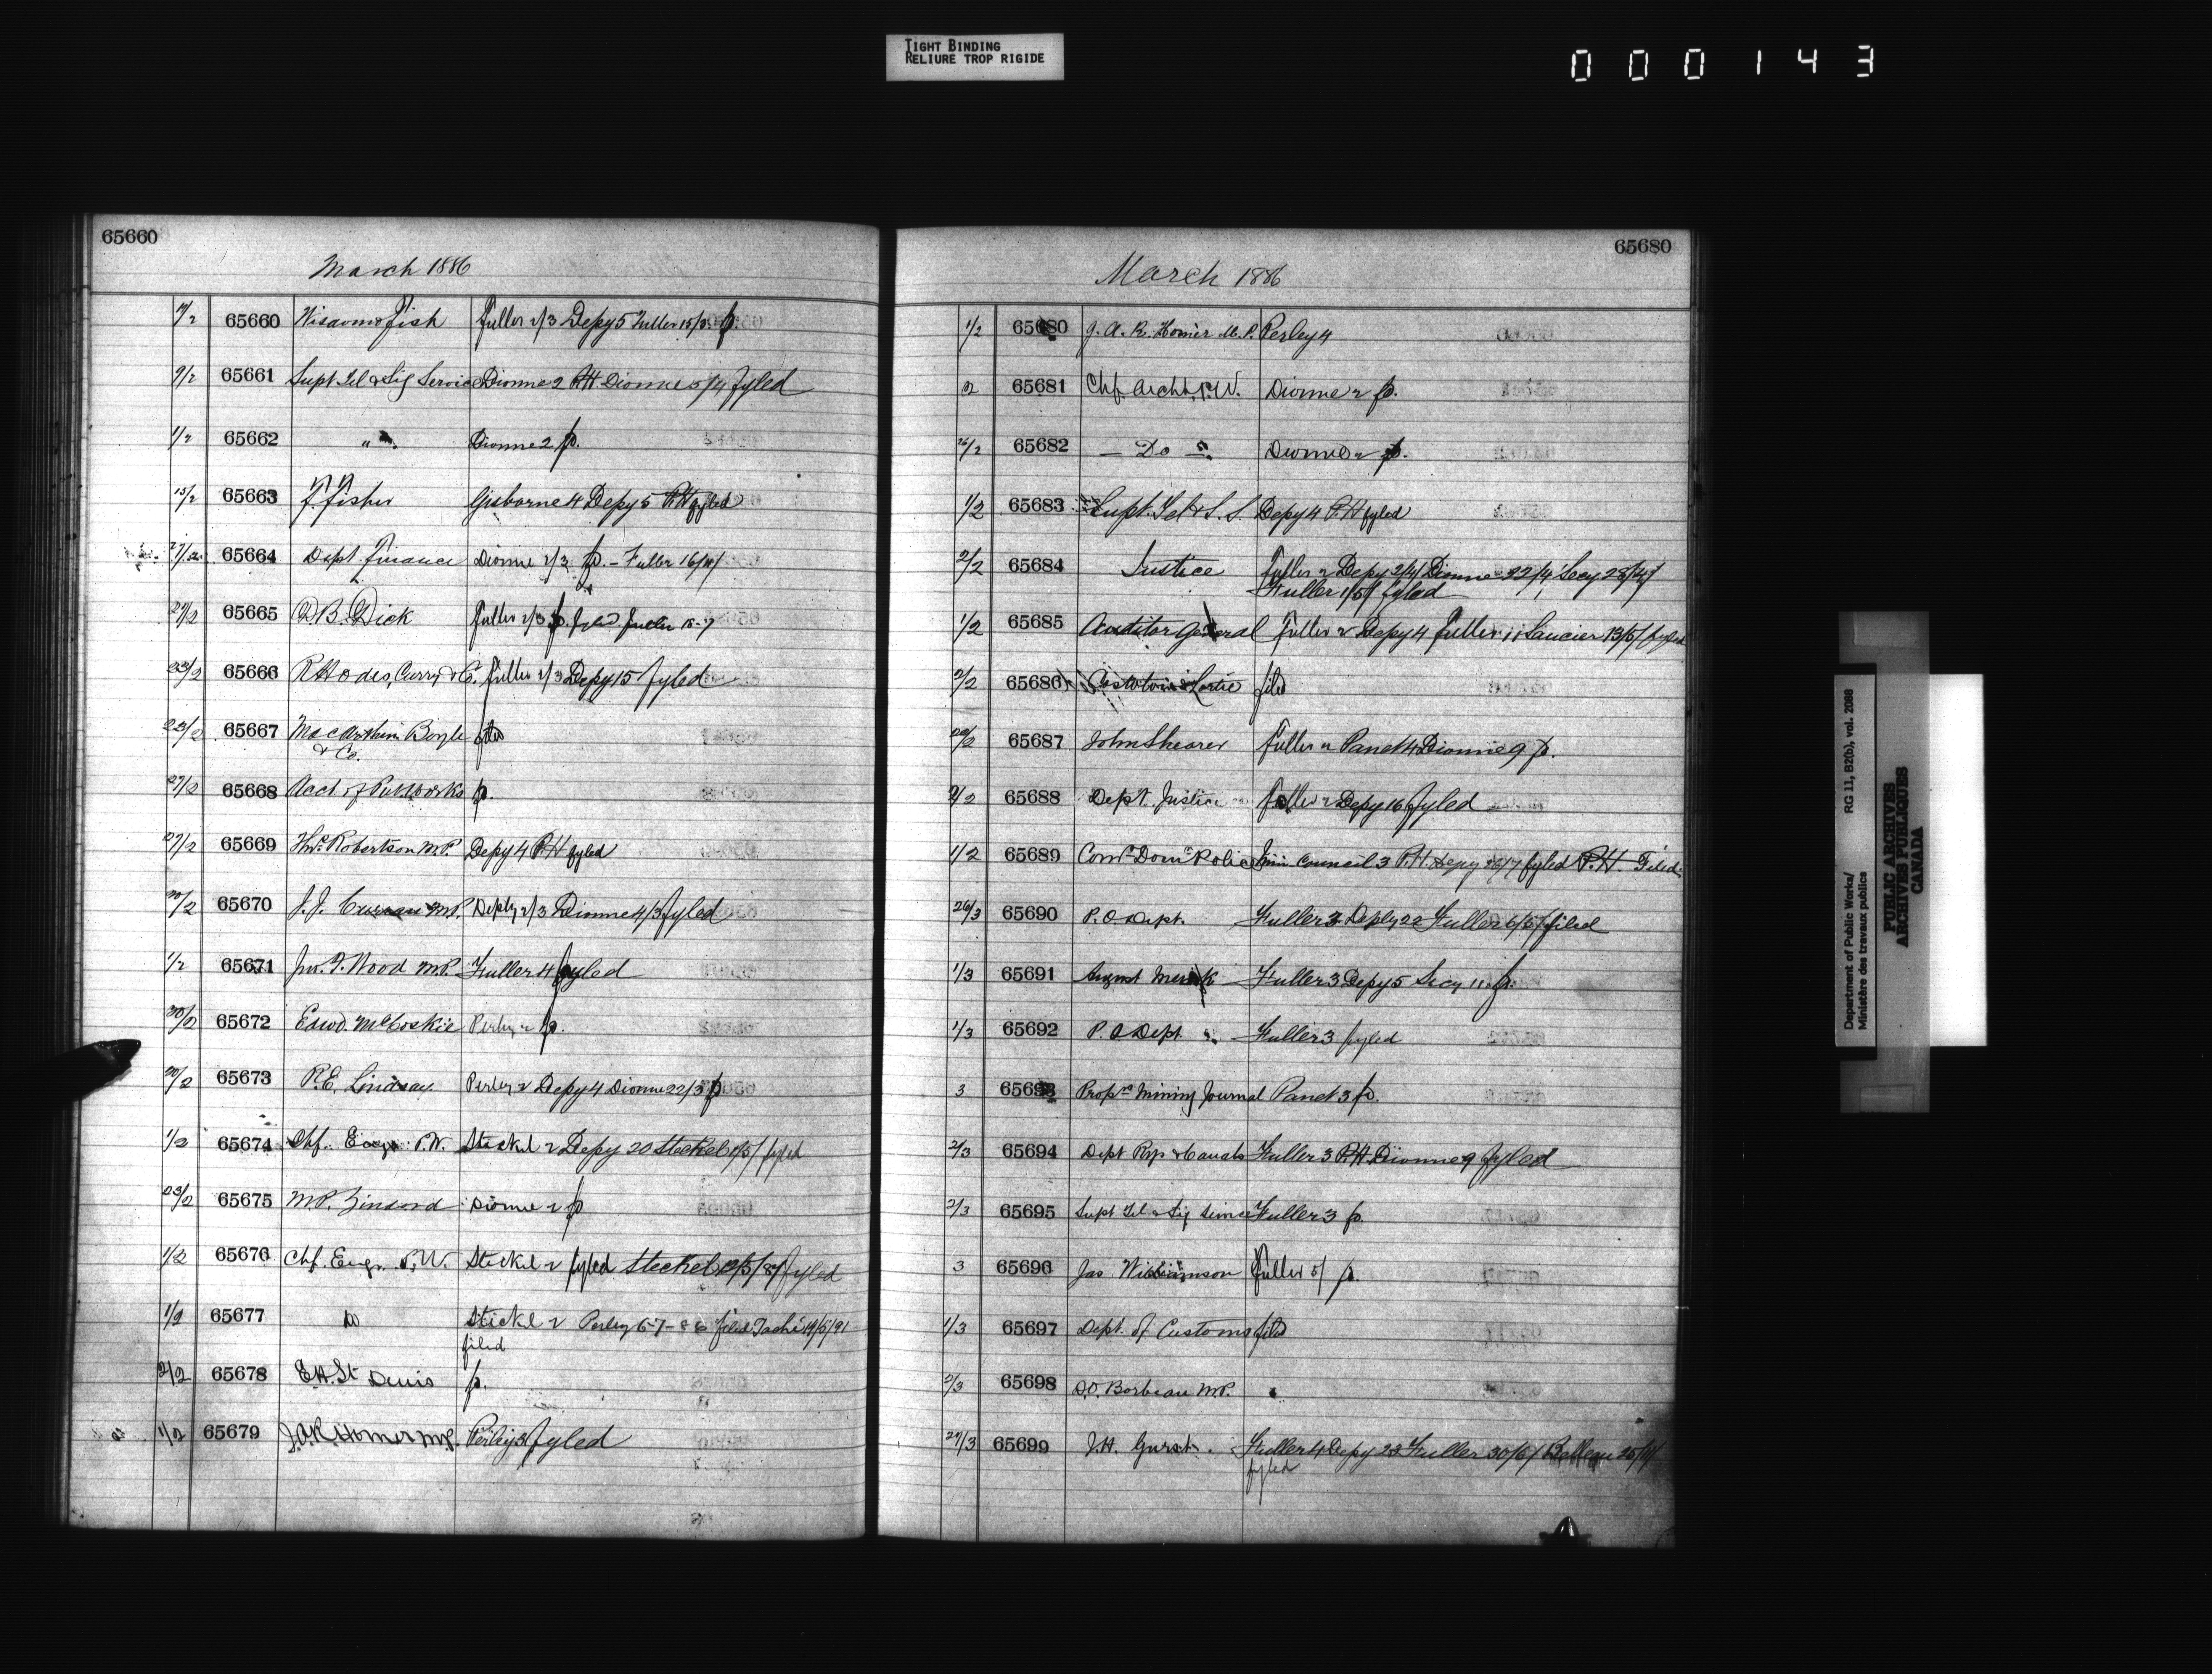 TIGHT BINDING
RELIURE TROP RIGIDE
000143
65660
March 1886
65660 Fish Fuller 2/3 Depy 5 Fuller 15/3 p.
9/2 65661 Supt Tel & Sig Service Dionne 2 PH Dionne 5/4 fyled
1/2 65662 " Dionne 2 p.
15/2 65663 F. Fisher Gisborne 4 Depy 5 P.H fyled
65664 Dept. Finance Dionne 2/3 p. - Fuller
27/2 65665 D.B. Dick Fuller 2/3 p. fyled Fuller 15-7
23/2 65666 Rhodes, Curry & Co. Fuller 2/3 Depy 15 fyled
23/2 65667 MacArthur Boyle
& Co.
27/2 65668 Acct of Pub. Works p.
27/2 65669 Robertson M.P. Depy 4 P.H fyled
65670 J.J. Curran M.P. Deply 2/3 Dionne 4/3 fyled
1/2 65671 Wood M.P. Fuller 4 fyled
65672 Edwd. McCoskie Perley 2 p.
65673 P.E. Lindsay Perley 2 Depy 4 Dionne 22/3 p.
1/2 65674 Chf. Engr. P.W. Steckel 2 Depy 20 Steckel fyled
23/2 65675 M.P. Dionne 2 p
1/2 65676 Chf. Engr. P.W. Steckel 2 fyled Steckel fyled
1/2 65677 Do Steckel 2 Perley 6-7-86 filed Taché 14/5/91
filed
2/2 65678 E.A. St Denis p.
1/2 65679 J.A.R. Homer M.P. Perley 3 fyled
65680
March 1886
1/2 65680 J.A.R. Homer M.P. Perley 4
2 65681 Chf. Archt. P.W. Dionne 2 p.
26/2 65682 — Do — Dionne 2 p.
1/2 65683 Supt. Tel & S.S. Depy 4 P.H fyled
2/2 65684 Justice Fuller 2 Depy 2/4/ Dionne 22/4/ Secy
Fuller 1/5/ fyled
1/2 65685 Auditor General Fuller 2 Depy 4 Fuller 11 Saucier 13/5/ fyled
2/2 65686 Lortie filed
65687 John Shearer Fuller 2 Panet 4 Dionne 9 p.
2/2 65688 Dept. Justice Fuller 2 Depy 16 fyled
1/2 65689 Comr. Domn Police Council 3 P.H Depy fyled P.H. Filed
26/3 65690 P.O. Dept. Fuller 3 Deply 22 Fuller 6/5/ filed
1/3 65691 August Fuller 3 Depy 5 Secy 11 p.
1/3 65692 P.O Dept " Fuller 3 fyled
3 65693 Proprs Mining Journal Panet 3 p.
2/3 65694 Dept Rys & Canals Fuller 3 P.H. Dionne 9 fyled
2/3 65695 Supt Tel & Sig Service Fuller 3 p.
3 65696 Jas Williamson Fuller 5/ p.
1/3 65697 Dept. of Customs filed
2/3 65698 Borbeau M.P.
65699 J.H. Fuller 4 Depy 23 Fuller 30/6/ Belleau
fyled
Department of Public Works/ RG 11, B2(b), vol. 2088
Ministère des travaux publics
PUBLIC ARCHIVES
ARCHIVES PUBLIQUES
CANADA